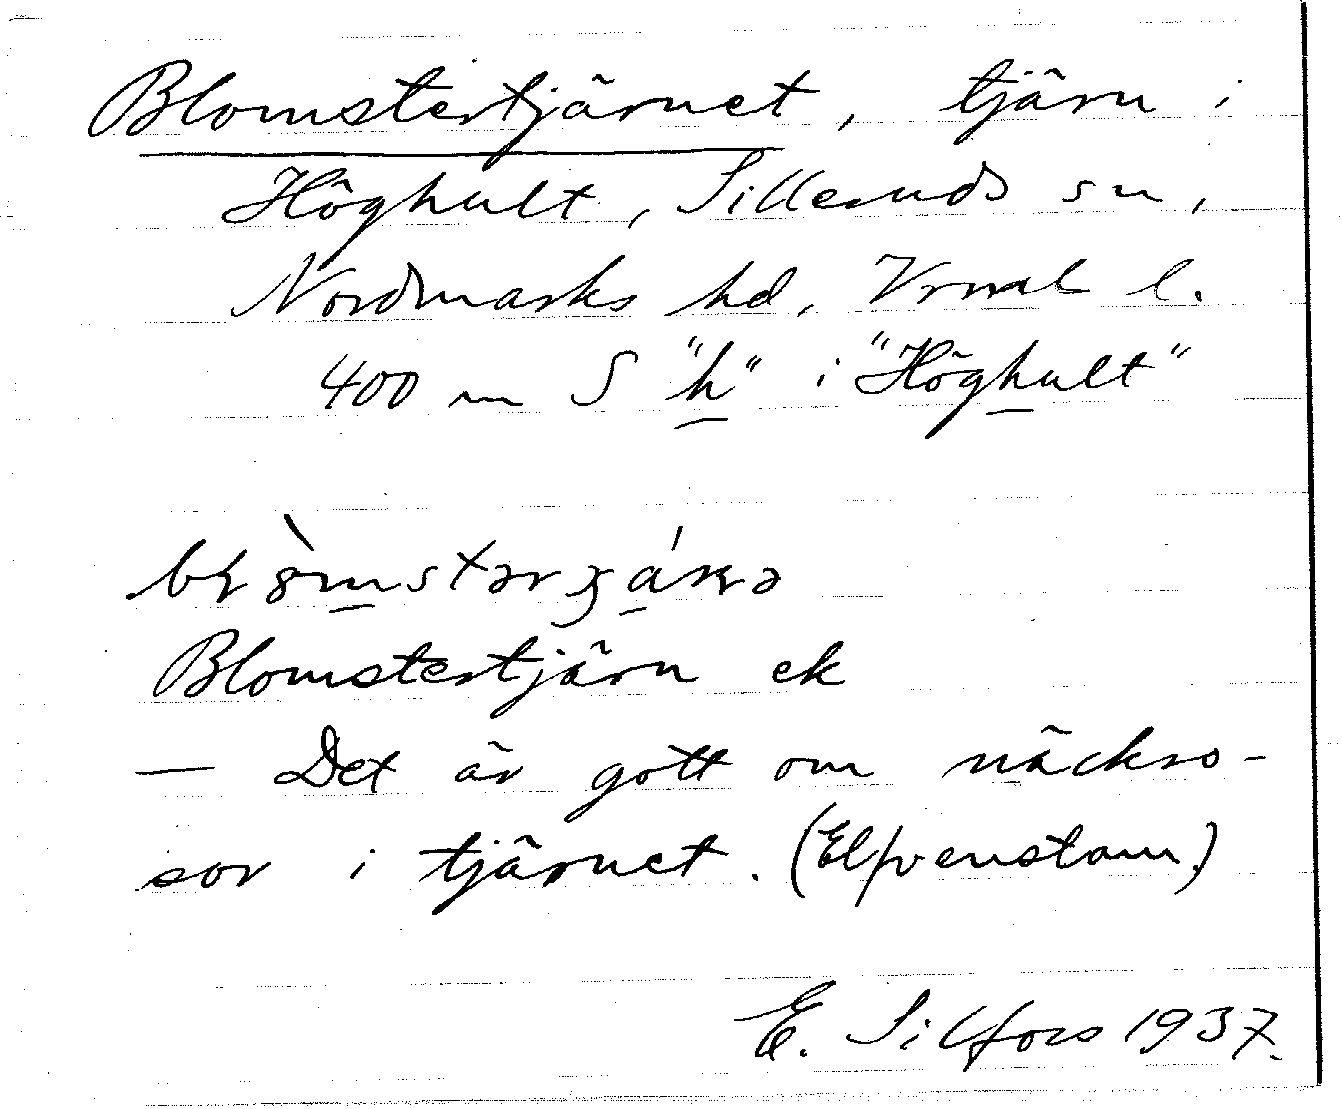 Blomstertjärnet, tjärn i
Höghult, Silleruds sn,
Nordmarks hd, Vrml l.
400 m S "h" i "Höghult"
Blomstertjärn ek
— Det är gott om näckro-
sor i tjärnet. (Elfvenstam)
E. Silfors 1937.